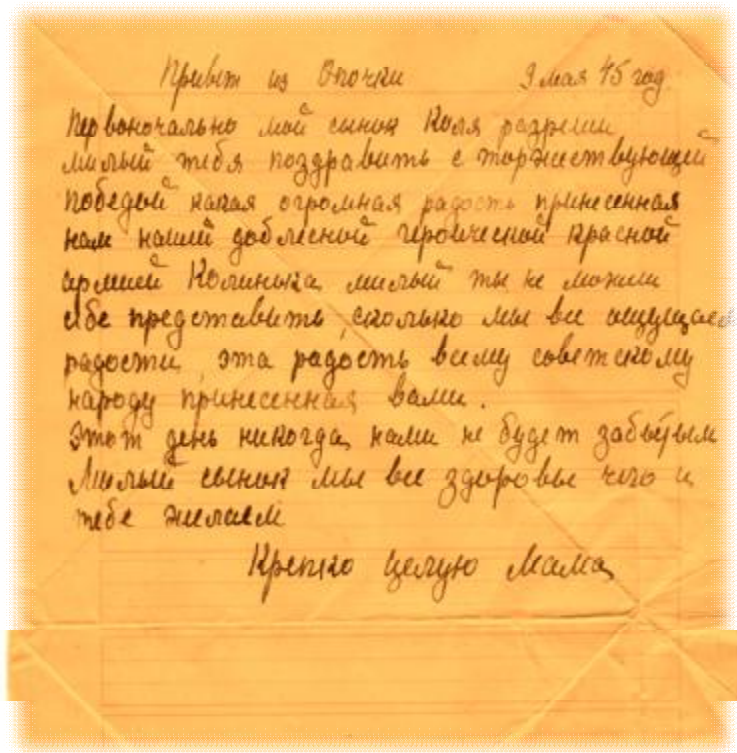 Привет из Опочки 9 мая 45 год.
Первоночально мой сынок Коля разреши
милый тебя поздравить с торжествующей
победой какая огромная радость принесенная
нам нашей доблесной героической Красной
армией Колинька милый ты не можиш
себе представить, сколько мы все ощущаем
радости, эта радость всему советскому
народу принесенная вами.
Этот день никогда нами не будет забытым
Милый сынок мы все здоровы чего и
тебе желаем
Крепко целую Мама